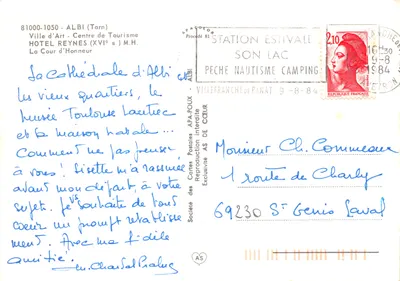 81000-1050 - ALBI (Tarn)
Ville d'Art - Centre de Tourisme
HOTEL REYNES (XVIe s) M.H.
La Cour d'Honneur
La Cathédrale d'Albi
les vieux quartiers, le
musée Toulouse Lautrec
et sa maison natale...
Comment ne pas penser
à vous ! Lisette m'a rassurée
avant mon départ, à votre
sujet. Je souhaite de tout
coeur un prompt rétablisse
ment. Avec ma fidèle
amitié.
Societe des Cartes Postales APA-POUX - ALBI
Reproduction interdite
Exclusivité AS DE CŒUR
AS
STATION ESTIVALE
SON LAC
PECHE NAUTISME CAMPING
9-8-84
2,10
16 30
9-8
1984
Monsieur Ch. Commeaux
1 route de Charly
69230 St Genis Laval